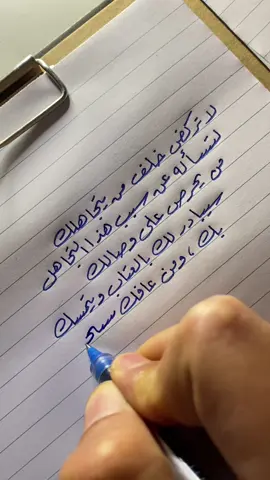 لا تركض خلف من يتجاهلك
لتسأله عن سبب هذا التجاهل
من يحرص على وصالك
سيبادر لك بالعتاب ويتمسك
بك ، ومن عافك